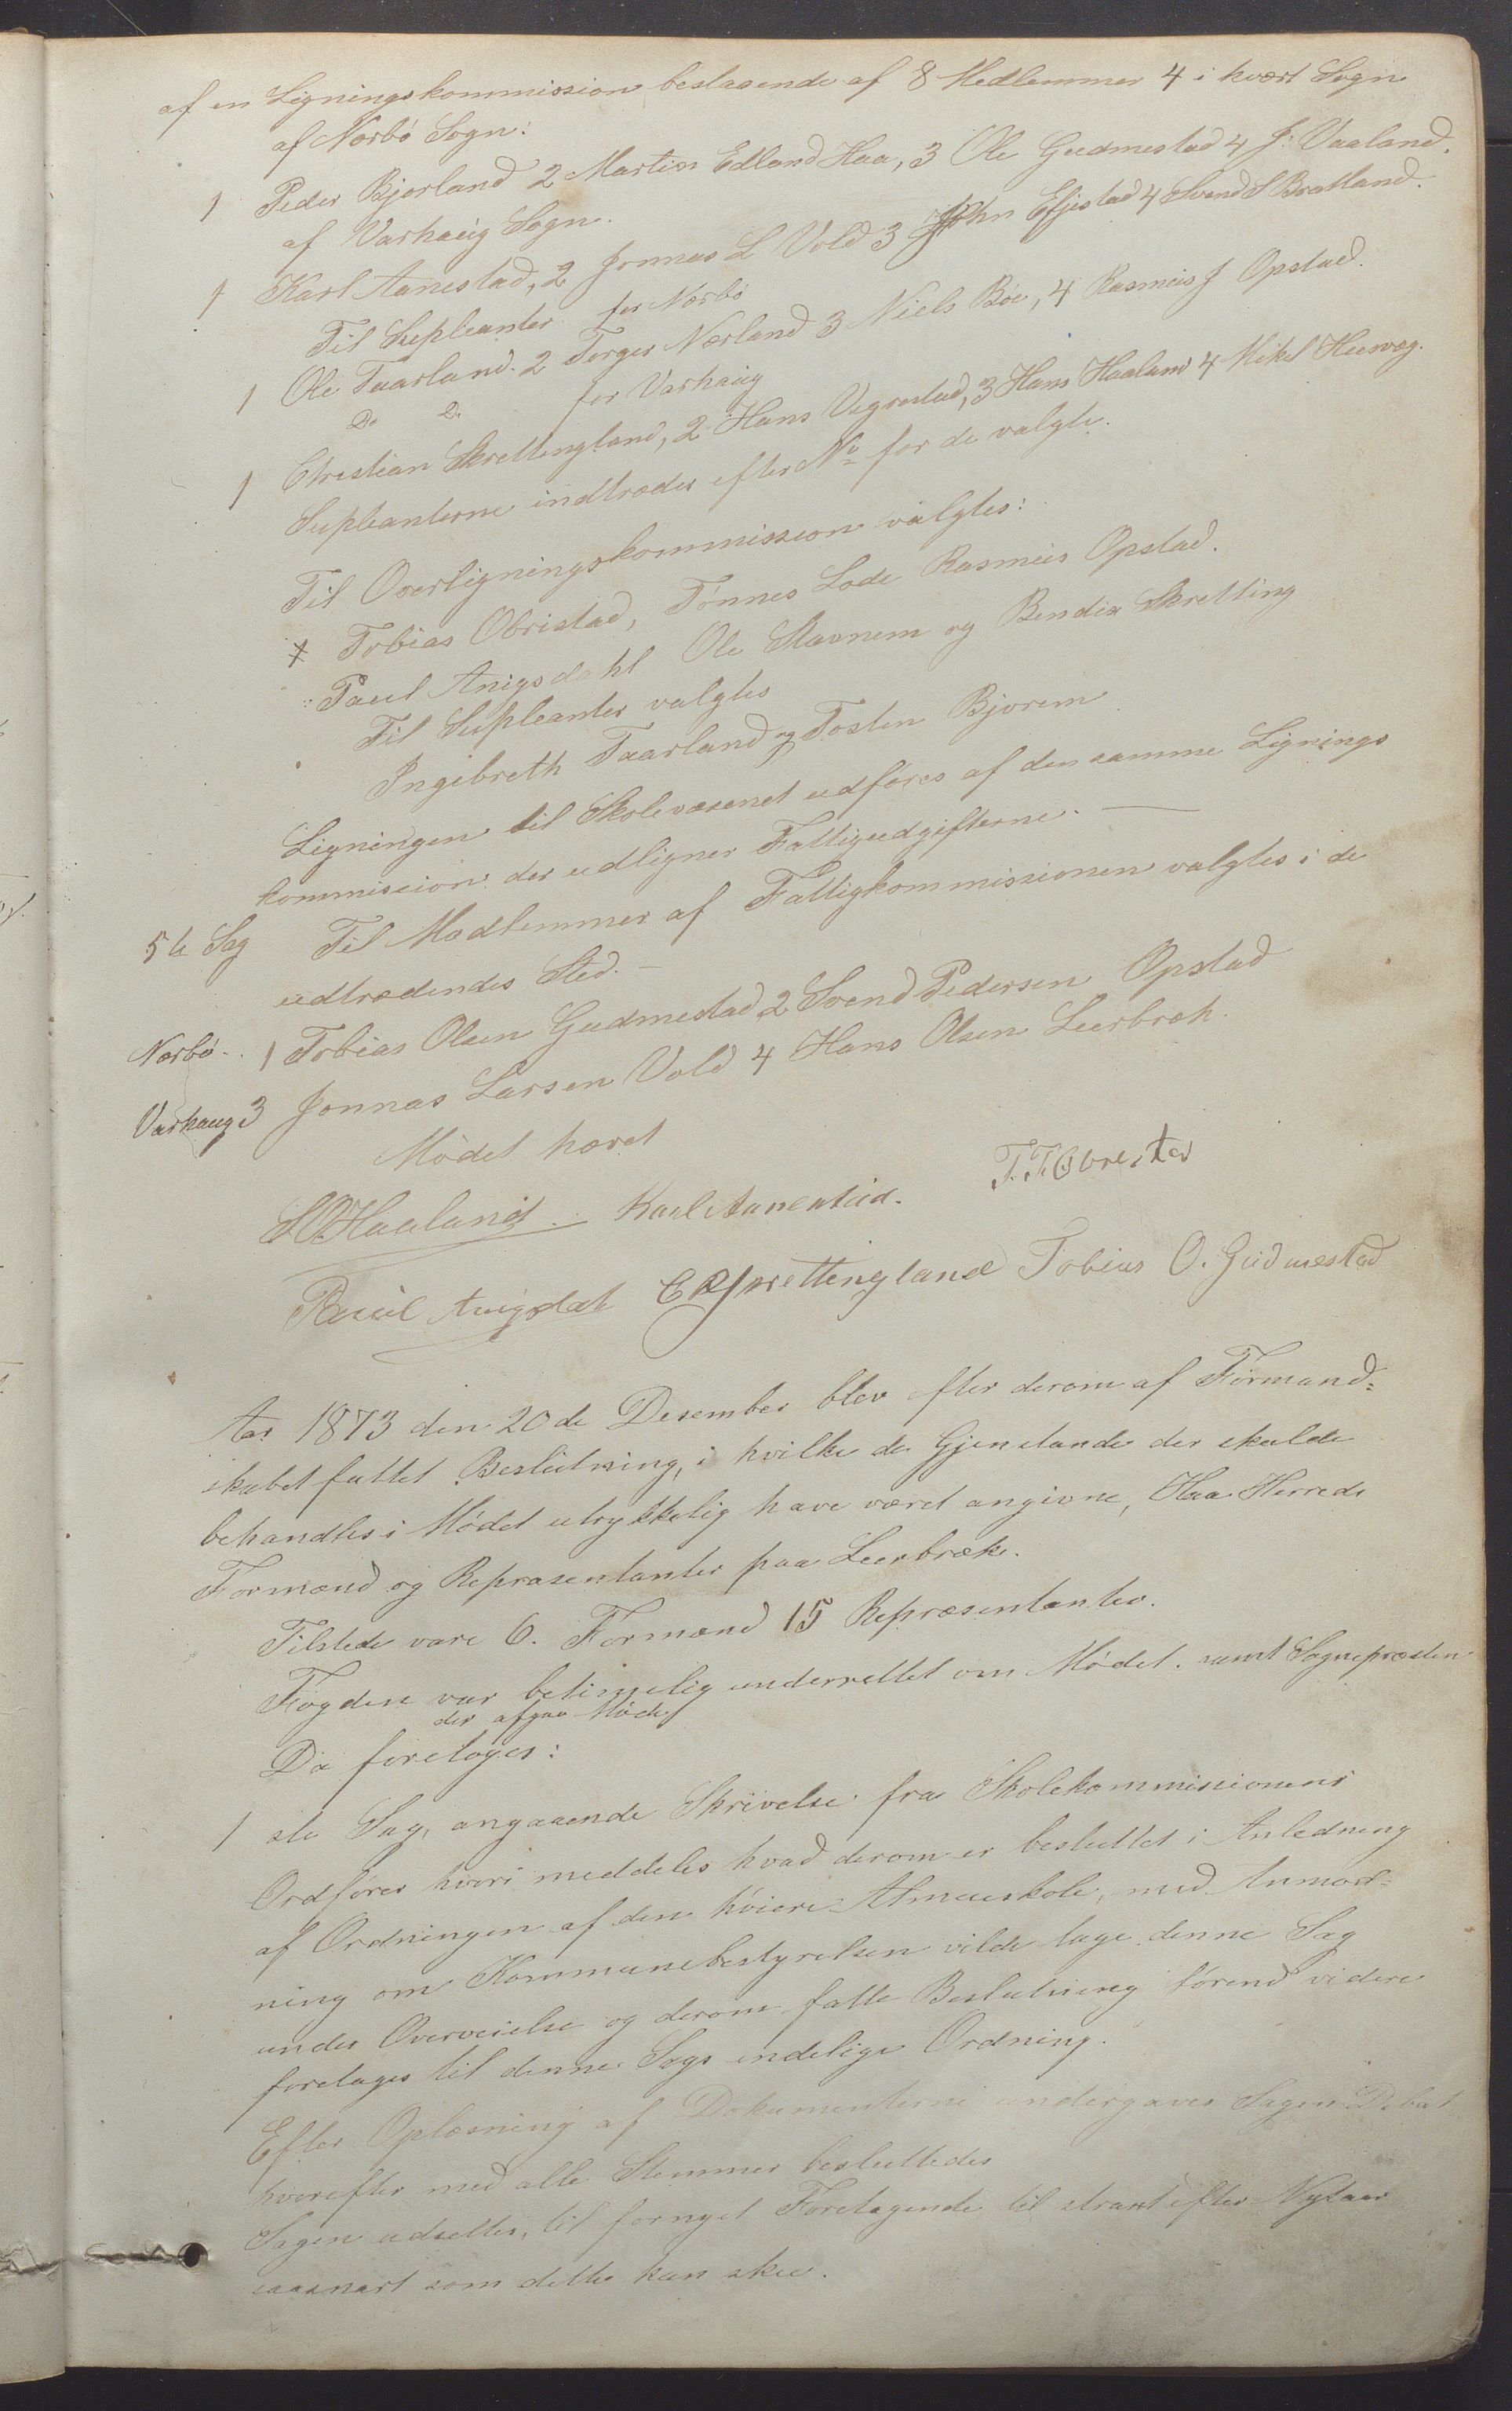 af en Ligningskommission bestaaende af 8 Medlemmer 4 i hvert Sogn
af Nærbø Sogn:
1 Peder Bjorland 2 Martin Edland Haa, 3 Ole Gudmestad 4 J. Vaaland.
af Varhaug Sogn.
1 Karl Aanestad, 2 Jonnas L Vold 3 John Efjestad 4 Svend S Bratland.
Til Supleanter for Nærbø
1 Ole Taarland. 2 Torger Nærland 3 Niels Bøe, 4 Rasmus J Opstad.
Do Do for Varhaug
1 Christian Skrettingland, 2 Hans Vigrestad, 3 Hans Haaland 4 Mikel
Supleanterne indtræder efter No for de valgte.
Til Overligningskommission valgtes:
Tobias Obristad, Tønnes Lode Rasmus Opstad.
Paul Anigsdahl Ole Stavnem og Bendix Skretting
Til Supleanter valgtes
Ingebreth Taarland og Tosten Bjorem
Ligningen til Skolevæsenet udføres af den samme Lignings
kommission der udligner Fattigudgifterne. —
5te Sag Til Medlemmer af Fattigkommissionen valgtes i de
udtrædendes Sted. —
Nærbø. 1 Tobias Olsen Gudmestad 2 Svend Pedersen Opstad
Varhaug 3 Jonnas Larsen Vold 4 Hans Olsen Leerbrek.
Mødet hævet
S O Haaland. Karl Aanestad. T. T. Obrestad
Paul Anigsdal C R Skrettingland Tobias O. Gudmestad
Aar 1873 den 20de Desember blev efter derom af Formand=
skabet fattet Beslutning, i hvilke de Gjenstande der skulde
behandles i Mødet utrykkelig have været angivne, Haa Herreds
Formænd og Repræsentanter paa Leerbrække.
Tilstede vare 6. Formænd 15 Repræsentanter.
Fogden var betimelig underrettet om Mødet. samt Sognepræsten
der afgav Møde
Da foretoges:
1ste Sag, angaaende Skrivelse fra Skolekommissionens
Ordfører hvori meddeles hvad derom er besluttet i Anledning
af Ordningen af den høiere Almueskole, med Anmod=
ning om Kommunebestyrelsen vilde tage denne Sag
under Overveielse og derom fatte Beslutning førend videre
foretages til denne Sags endelige Ordning.
Efter Oplæsning af Dokumenterne undergaves Sagen Debat
hvorefter med alle Stemmer besluttedes
Sagen udsettes, til fornyet Foretagende til straxt efter Nytaar
saasnart som dette kan skee.